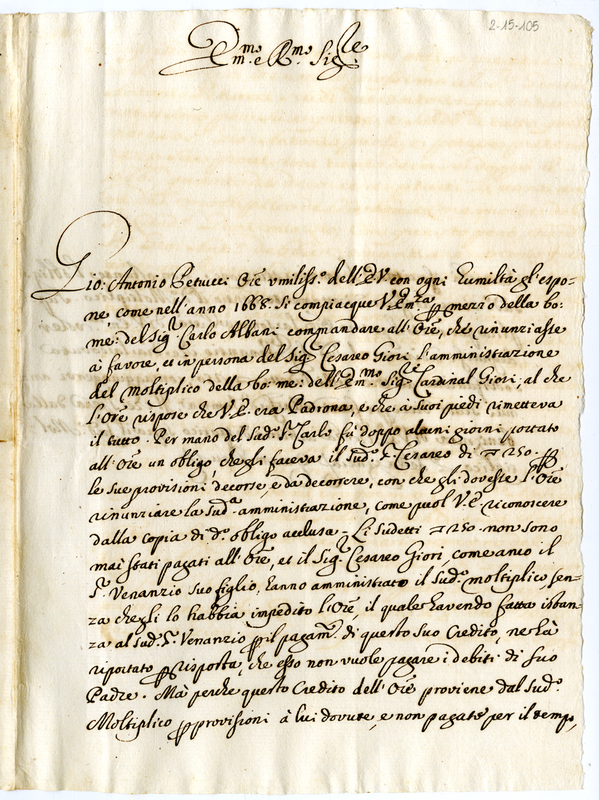 2-15-105
Em.mo e R.mo Sig.re
Gio: Antonio Petucci Or.e umiliss.o dell'E.V. con ogni humiltà gl'espo-
ne come nell'anno 1668. Si compiacque V. Em.za per mezzo della bo:
me: del Sig.r Carlo Albani commandare all'Or.e, che rinunziasse
à favore, et in persona del Sig.r Cesareo Giori l'amministrazione
del moltiplico della bo: me: dell'Em.mo Sig.re Cardinal Giori; al che
l'Or.e rispose che V.E. era Padrona, e che à Suoi piedi rimetteva
il tutto. Per mano del Sud.o S.r Carlo fù doppo alcuni giorni portato
all'Or.e un obligo, che gli faceva il Sud.o S.r Cesareo di 250. per
le sue provisioni decorse, e da decorrere, con che gli dovesse l'Or.e
rinunziare la Sud.a amministrazione, come puol V.E. riconoscere
dalla copia di d.o obligo acclusa. Li Sudetti 250. non sono
mai stati pagati all'Or.e, et il Sig.r Cesareo Giori, come anco il
S.r Venanzio suo figlio, hanno amministrato il Sud.o moltiplico, sen-
za che gli lo habbia impedito l'Or.e il quale havendo fatta istan-
za al Sud.o S.r Venanzio per il pagam.to di questo suo Credito, ne hà
riportato per risposta, che esso non vuole pagare i debiti di suo
Padre. Mà perche questo Credito dell'Or.e proviene dal Sud.o
Moltiplico per provisioni à lui dovute, e non pagate per il tempo,